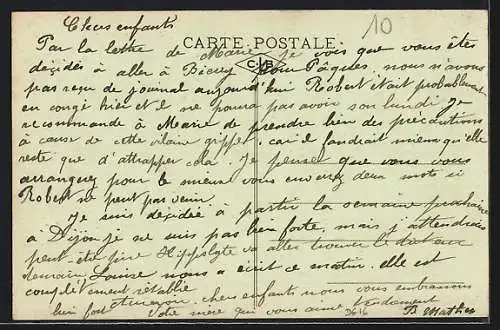 Chers enfants
10
CARTE POSTALE
CB
Par la lettre de Marie je vois que vous êtes
décidés à aller à Bécuy pour Pâques, nous n'avons
pas reçu de journal aujourd'hui Robert était probablement
en congé hier et il ne pourra pas avoir son lundi je
recommande à Marie de prendre bien des précautions
à cause de cette vilaine grippe, car il faudrait mieux qu'elle
reste que d'attrapper cela. Je pense que vous vous
arrangez pour le mieux vous enverrez deux mots si
Robert ne peut pas venir.
Je suis décidée à partir la semaine prochaine
à Dijon je ne suis pas bien forte, mais j'attendrais
peut-être père Hippolyte va aller trouver le docteur
demain, Louise nous a écrit ce matin, elle est
complètement rétablie
bien fort chers enfants nous vous embrassons
Votre mère qui vous aime tendrement
B Mathey